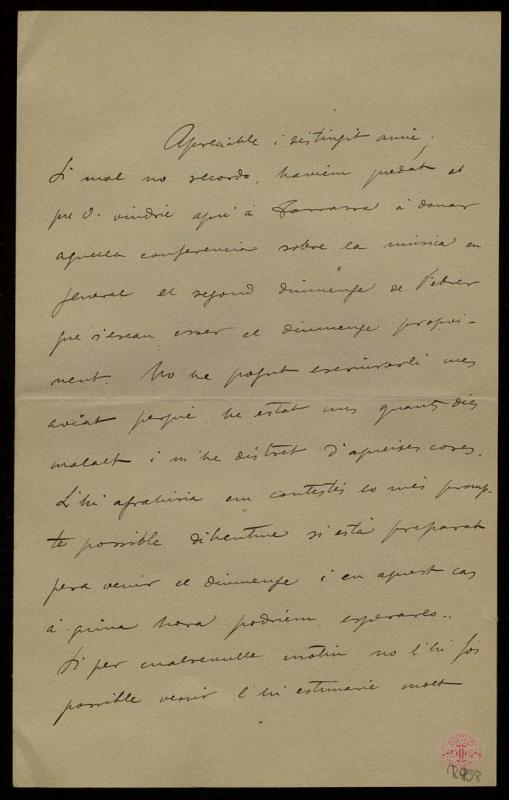 Apreciable i distingit amic.
Si mal no recordo, haviem quedat al
que V. vindrie aquí à Tarrassa à donar
aquella conferencia sobre la música en
general el segond diumenge de Febrer
que s'escau esser el diumenge propvi-
nent. No he pogut escriureli mes
aviat perque he estat uns quants dies
malalt i m'he distret d'aqueixes coses.
L'hi agrahiria em contestés lo més promp-
te possible dihentme si està preparat
pera venir el diumenge i en aquest cas
à quina hora podríem esperarlo..
Si per cualsevulle motiu no l'hi fos
possible venir l'hi estimarie molt